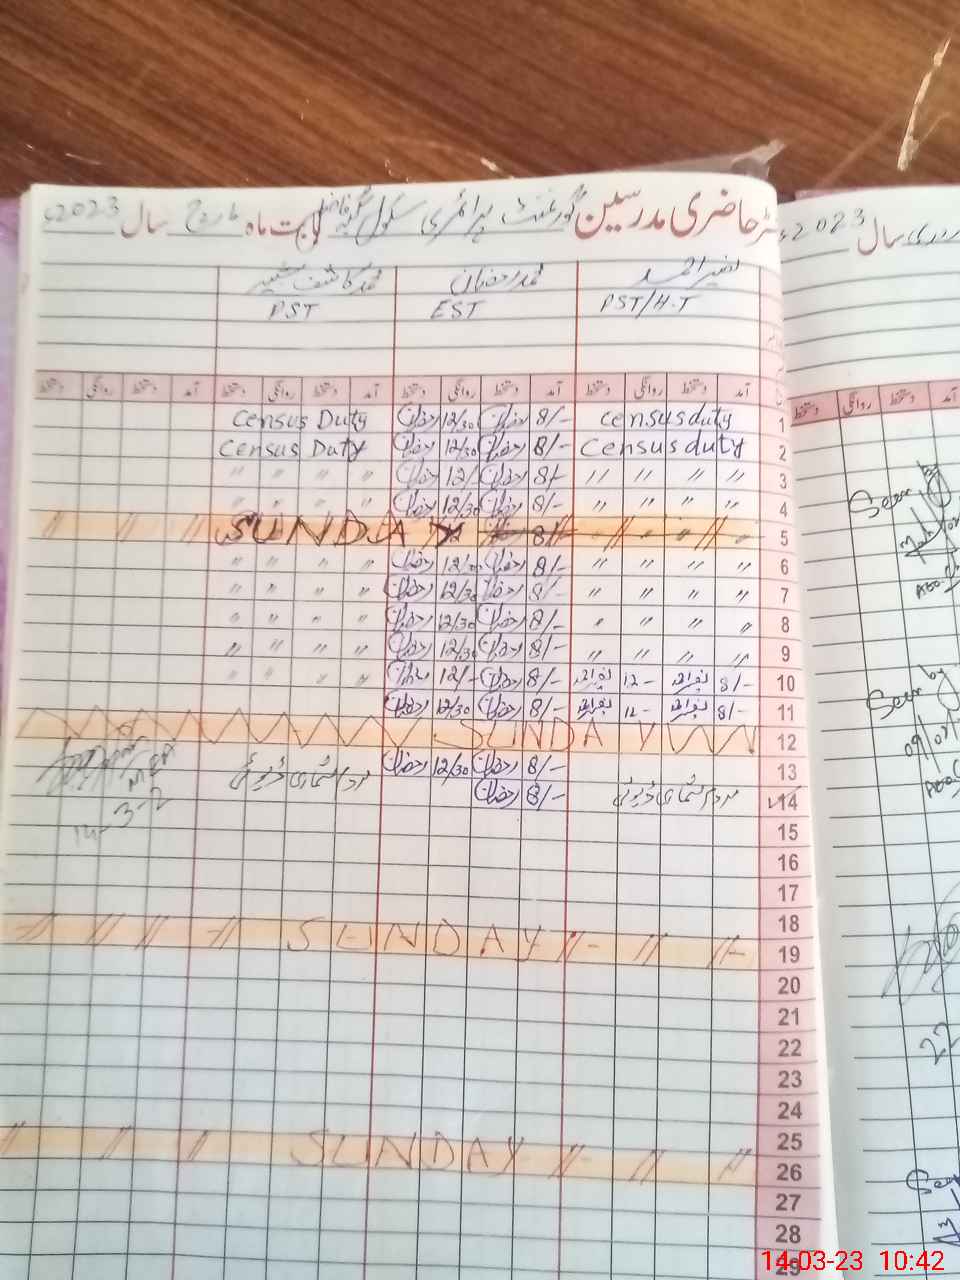 رجسٹر حاضری مدرسین گورنمنٹ پرائمری سکول بابت ماہ مارچ سال 2023ء
نصیر احمد محمد رمضان محمد کاشف
PST/H.T EST PST
آمد دستخط روانگی دستخط آمد دستخط روانگی دستخط آمد دستخط روانگی دستخط آمد دستخط روانگی دستخط
1 census duty 8/- رمضان 12/30 رمضان Census Duty
2 Census duty 8/- رمضان 12/30 رمضان Census Duty
3 〃 〃 〃 〃 8/- رمضان 12/ رمضان 〃 〃 〃 〃
4 〃 〃 〃 〃 8/- رمضان 12/30 رمضان 〃 〃 〃 〃
5 SUNDAY 8/-
6 〃 〃 〃 〃 8/- رمضان رمضان 〃 〃 〃 〃
7 〃 〃 〃 〃 8/- رمضان 12/30 رمضان 〃 〃 〃 〃
8 〃 〃 〃 〃 8/- رمضان 12/30 رمضان 〃 〃 〃 〃
9 〃 〃 〃 〃 8/- رمضان 12/30 رمضان 〃 〃 〃 〃
10 8/- نصیر احمد 12- نصیر احمد 8/- رمضان 12/- رمضان 〃 〃 〃 〃
11 8/- نصیر احمد 12- نصیر احمد 8/- رمضان 12/30 رمضان
12 SUNDAY
13 8/- رمضان 12/30 رمضان مردم شماری ڈیوٹی
14 مردم شماری ڈیوٹی 8/- رمضان
14-3-2
15
16
17
18
19 SUNDAY
20
21
22
23
24
25
26 SUNDAY
27
28
29
سال 2023ء
آمد دستخط روانگی دستخط
Seen by
Seen by
22
14-03-23 10:42